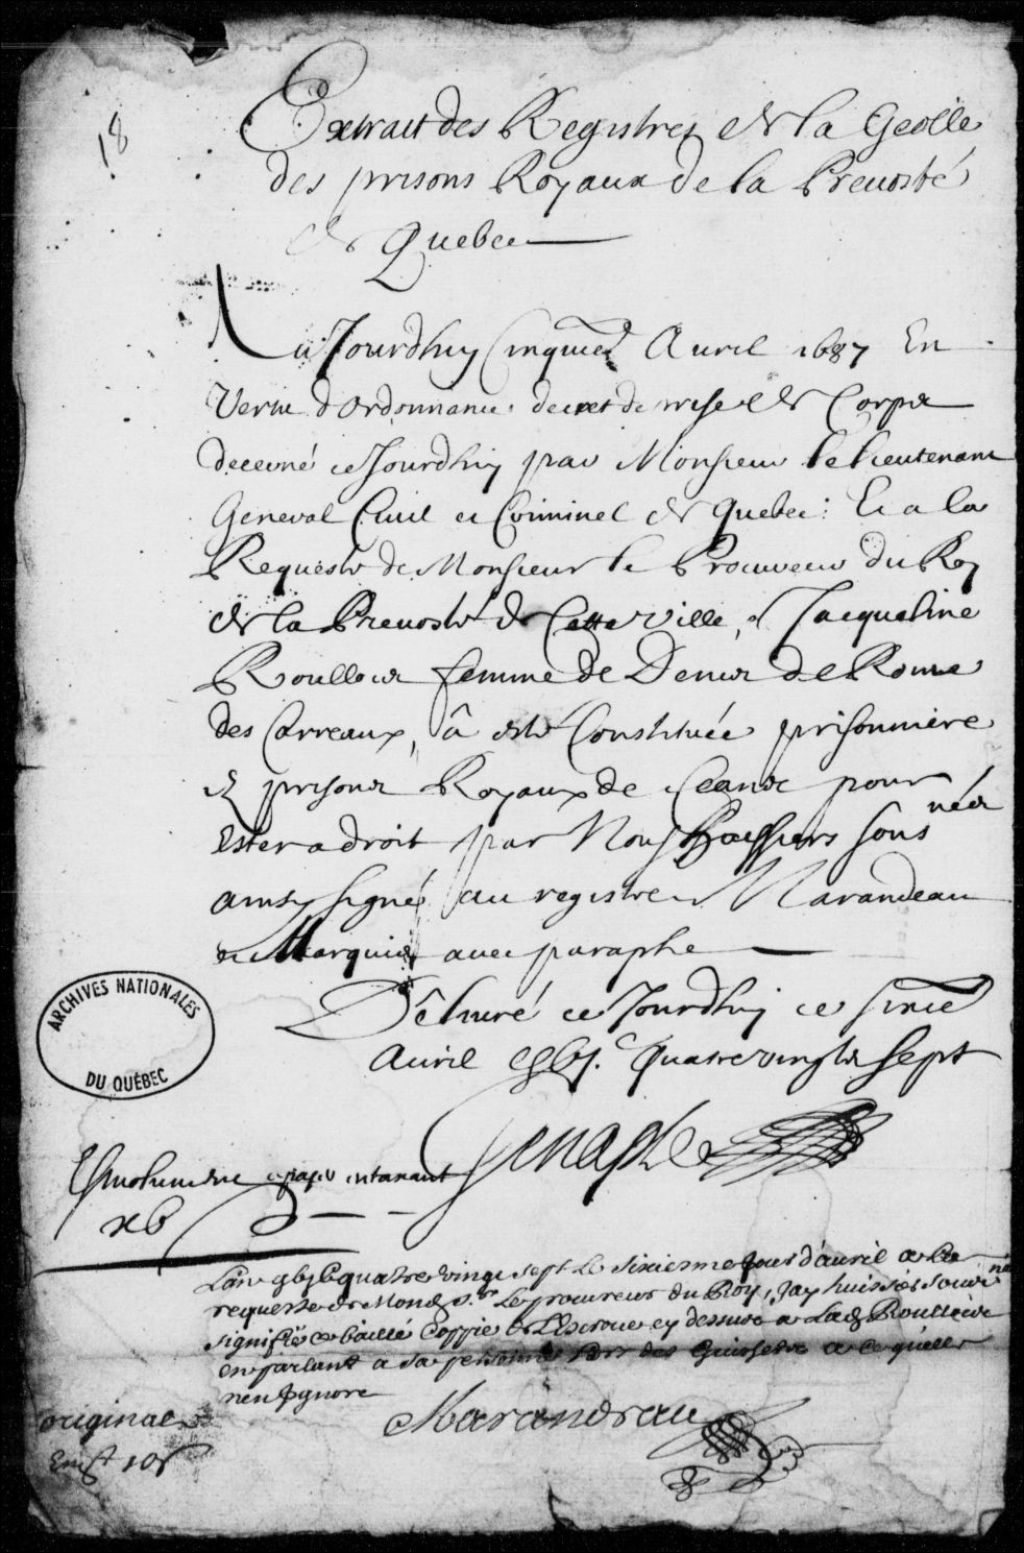 18
Extrait des Registres de la Geolle
des prisons Royaux de la Prevosté
de Quebec
Aujourdhuy Cinquie Avril 1687 En
Vertu d'Ordonnance decret de prise de Corps
decerné ce Jourdhuy par Monsieur le Lieutenant
General Civil et Criminel de Quebec: Et a la
Requeste de Monsieur le Procureur du Roy
de la Prevosté de Cette Ville, Jacqueline
Roullois femme de Denis de Rome
des Carreaux, â esté Constituée prisonniere
es prisons Royaux de Ceans pour
Ester a droit par Nous huissiers sous
nés
ainsy signé au registre Marandeau
et Marquis avec paraphe
Délivré ce Jourdhuy ce sixie
Avril gbj.c Quatrevingts Sept
Genaple
papier
xb
Lan gbjc quatre vingt sept le sixiesme jour d'avril a la
requeste de Mond sr. Le procureur du Roy, Jay huissier sous
né
signifié et baillé Coppie de Lescroue cy dessus a Lad Roulloise
en parlant a sa personne des Guischets a ce quelle
nen Ignore
Marandeau
original
10s
ARCHIVES NATIONALES
DU QUÉBEC